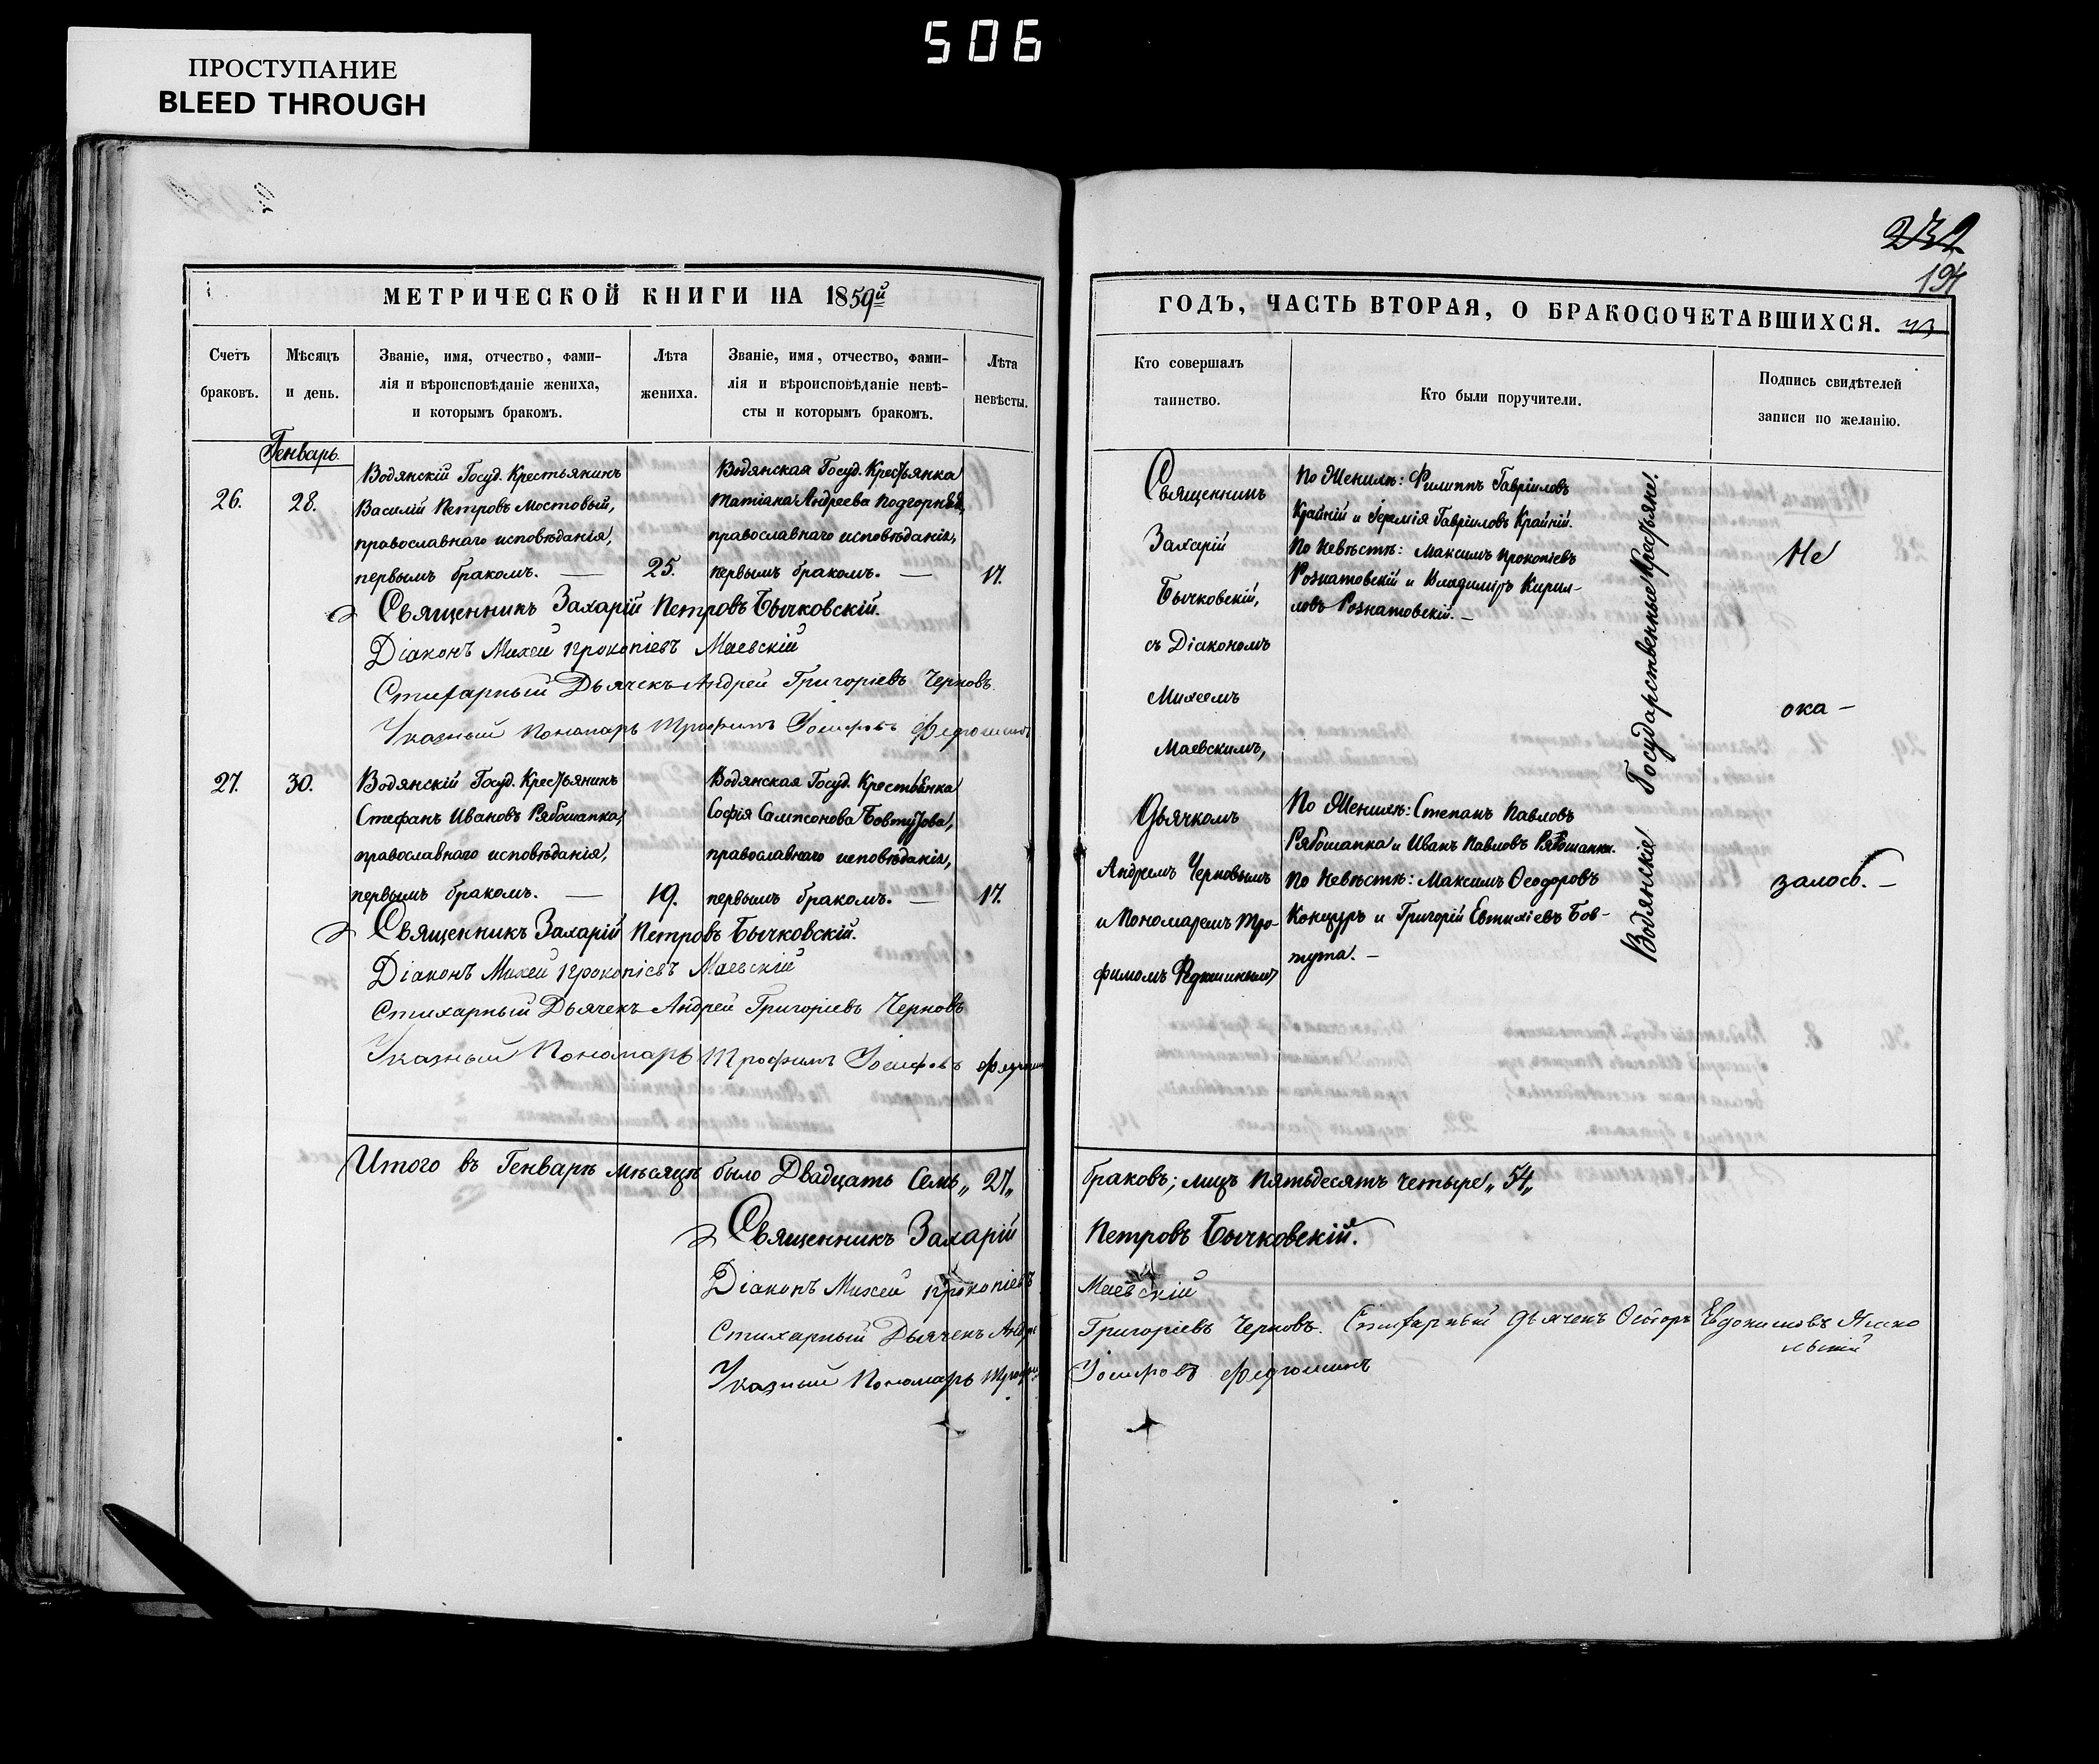 506
ПРОСТУПАНИЕ
BLEED THROUGH
232
194
МЕТРИЧЕСКОЙ КНИГИ НА 1859й
Счетъ браковъ.
Мѣсяцъ и день.
Званіе, имя, отчество, фами-
лія и вѣроисповѣданіе жениха,
и которымъ бракомъ.
Лѣта жениха.
Званіе, имя, отчество, фами-
лія и вѣроисповѣданіе невѣ-
сты и которымъ бракомъ.
Лѣта невѣсты.
Генварь.
26.
28.
Водянскій Госуд. Крестьянинъ
Василій Петровъ Мостовый,
православнаго исповѣданія,
первымъ бракомъ. —
25.
Водянская Госуд. Крестьянка
Татіана Андреева Подгорняя,
православнаго исповѣданія,
первымъ бракомъ. —
17.
Священникъ Захарій Петровъ Бычковскій.
Діаконъ Михей Прокопіевъ Маевскій
Стихарный Дьячекъ Андрей Григоріевъ Черновъ.
Указный Пономарь Трофимъ Іосифовъ Федюшинъ
27.
30.
Водянскій Госуд. Крестьянинъ
Стефанъ Ивановъ Рябошапка,
православнаго исповѣданія,
первымъ бракомъ. —
19.
Водянская Госуд. Крестьянка
Софія Сампсонова Бовтутова,
православнаго исповѣданія,
первымъ бракомъ. —
17.
Священникъ Захарій Петровъ Бычковскій.
Діаконъ Михей Прокопіевъ Маевскій
Стихарный Дьячекъ Андрей Григоріевъ Черновъ
Указный Пономарь Трофимъ Іосифовъ Федюшин
ГОДЪ, ЧАСТЬ ВТОРАЯ, О БРАКОСОЧЕТАВШИХСЯ.
Кто совершалъ
таинство.
Кто были поручители.
Подпись свидѣтелей
записи по желанію.
Священникъ
Захарій
Бычковскій,
съ Діакономъ
Михеемъ
Маевскимъ,
Дьячкомъ
Андреемъ Черновымъ
и Пономаремъ Тро-
фимомъ Федюшинымъ
По Женихѣ: Филиппъ Гавріиловъ
Крайній и Іеремія Гавріиловъ Крайній.
По Невѣстѣ: Максимъ Прокопіевъ
Рознатовскій и Владиміръ Кирил-
ловъ Рознатовскій. —
По Женихѣ: Степанъ Павловъ
Рябошапка и Иванъ Павловъ Рябошапка.
По Невѣстѣ: Максимъ Ѳеодоровъ
Концуръ и Григорій Евтихіевъ Бов-
тута. —
Водянскіе Государственные Крестьяне.
Не
ока —
залось. —
Итого въ Генварѣ мѣсяцѣ было Двадцать Семь „27„ браковъ; лицъ Пятьдесятъ четыре „54„
Священникъ Захарій Петровъ Бычковскій.
Діаконъ Михей Прокопіевъ Маевскій
Стихарный Дьячекъ Андре Григоріевъ Черновъ. Стихарный Дьячекъ Евдокимовъ
Указный Пономарь Трофи Іосифовъ Федюшинъ